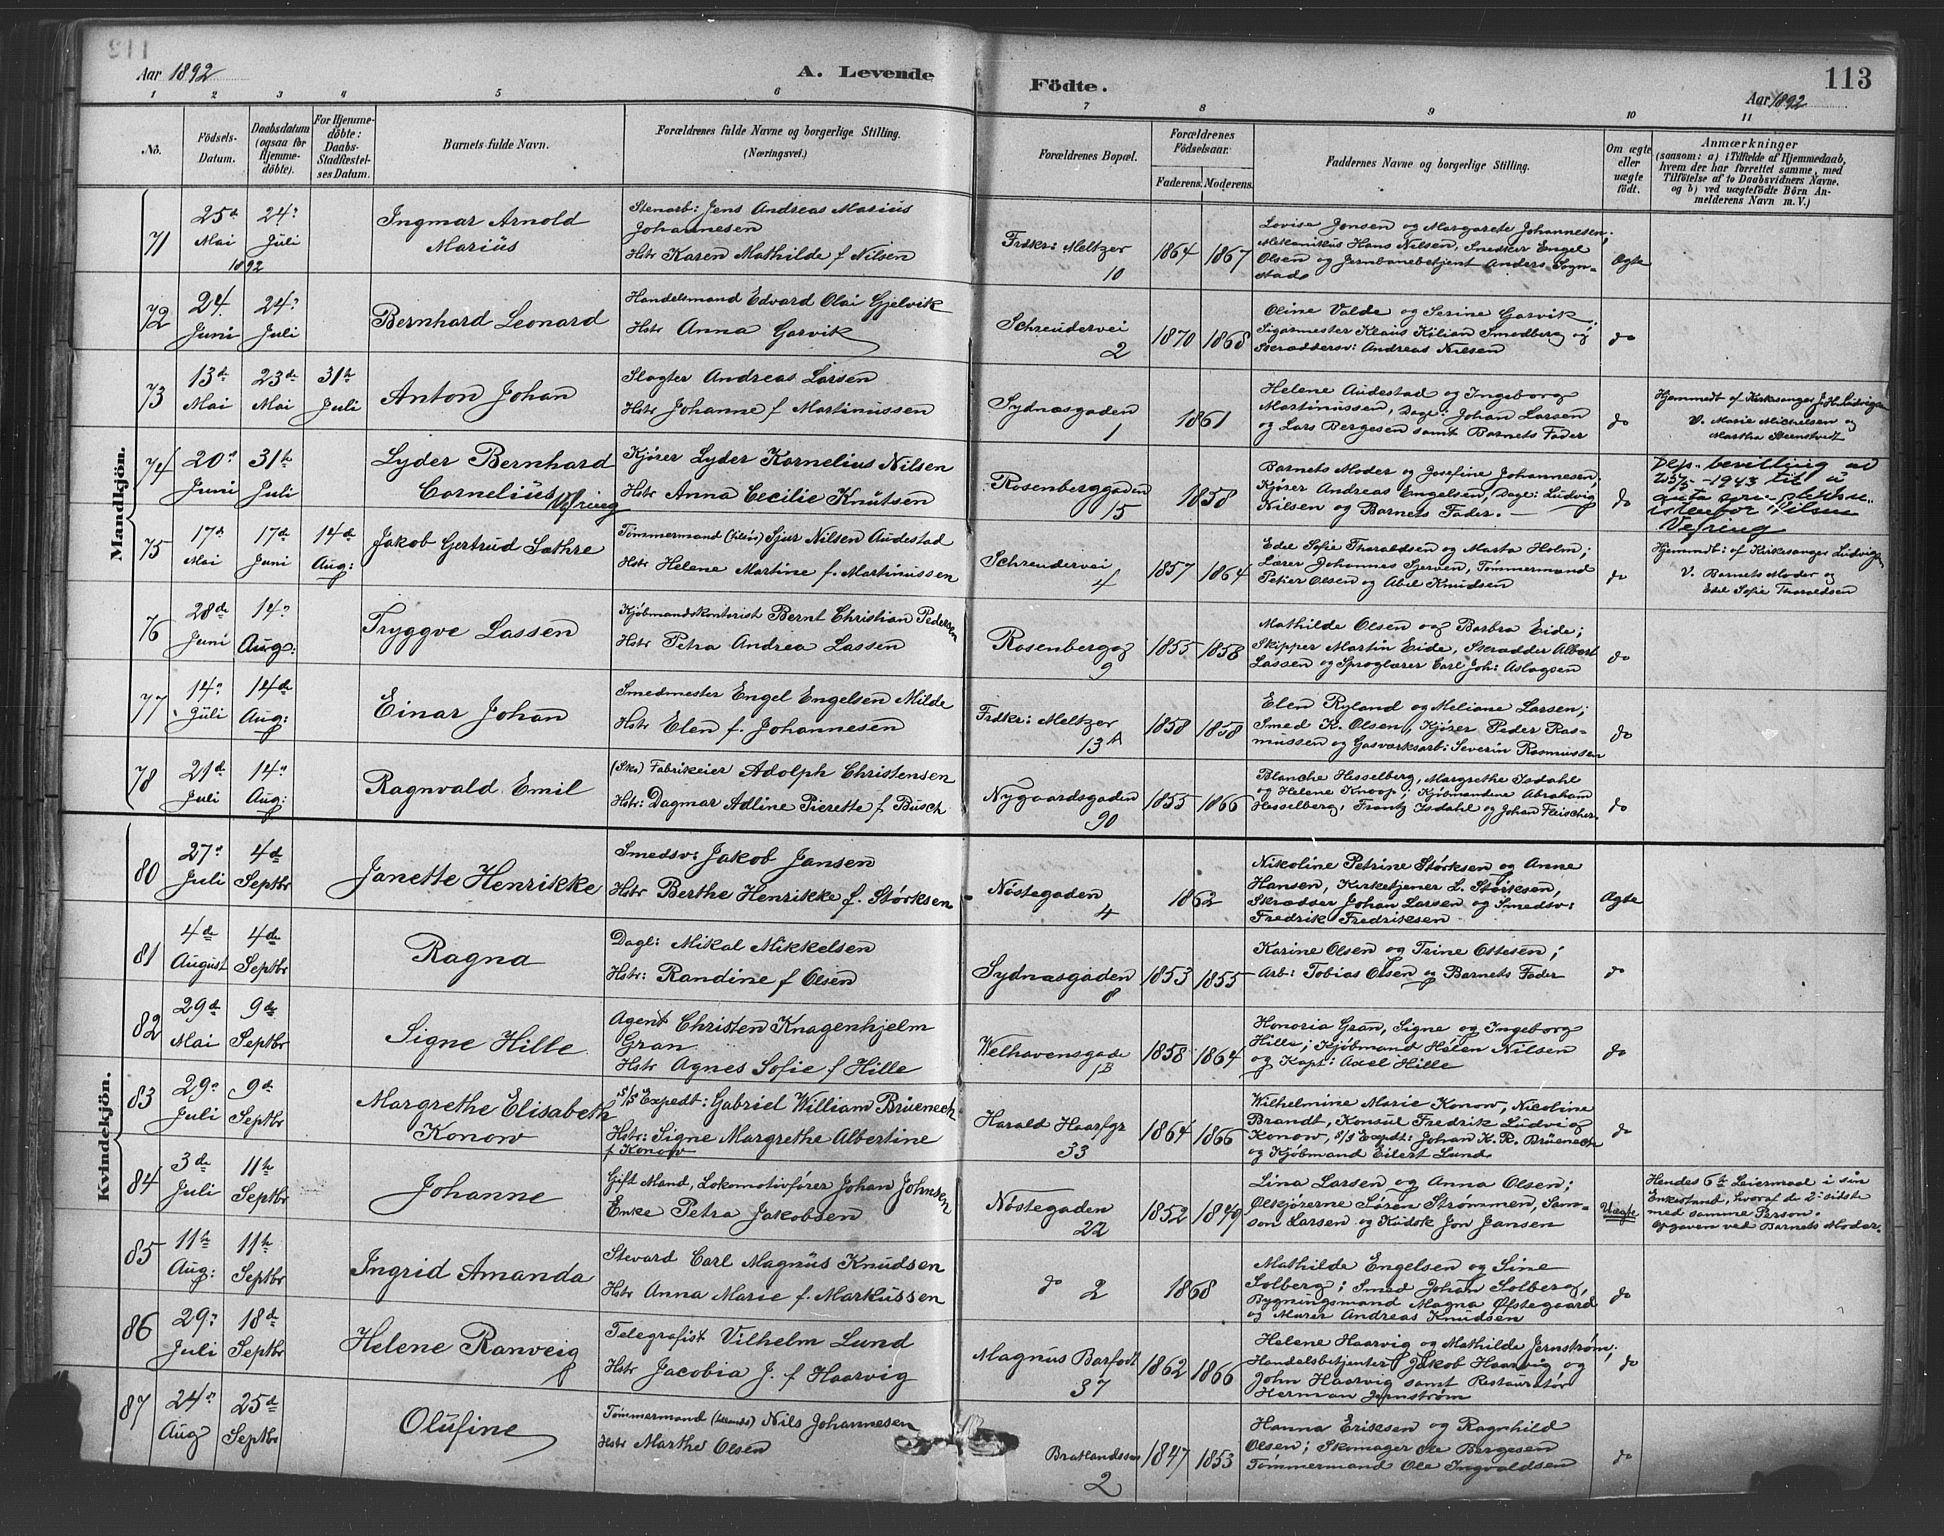 Aar 1892
A. Levende
Födte.
113
Aar 1892
1 2 3 4 5 6 7 8 9 10 11
No.
Födsels-
Datum.
Daabsdatum
(ogsaa for
Hjemme-
döbte).
For Hjemme-
döbte:
Daabs-
Stadfæstel-
ses Datum.
Barnets fulde Navn.
Forældrenes fulde Navne og borgerlige Stilling.
(Næringsvei.)
Forældrenes Bopæl.
Forældrenes
Födselsaar.
Faderens. Moderens.
Faddernes Navne og borgerlige Stilling.
Om ægte
eller
uægte
födt.
Anmærkninger
(saasom: a) i Tilfælde af Hjemmedaab,
hvem der har forrettet samme, med
Tilföielse af to Daabsvidners Navne,
og b) ved uægtefödte Börn An-
melderens Navn m. V.)
Mandkjön.
71
25de Mai 1892
24" Juli
Ingmar Arnold
Mariüs
Stenarb: Jens Andreas Marius
Johannesen
Hstr Karen Mathilde f Nilsen
Frdkr: Meltzer
10
1864 1867
Lovise Jonsen og Margarete Johannesen;
Mekanikus Hans Nilsen, Smedker Engel
Olsen og Jernbanebetjent Anders Sogn-
stads
Ægte
72
24 Juni
24" Juli
Bernhard Leonard
Handelsmand Edvard Olai Gjelvik
Hstr Anna Garvik
Schreudervei
2
1870 1868
Oline Valde og Serine Garvik;
Sigarmester Klaus Kilian Smedberg og
Skræddersv: Andreas Nilsen
do
73
13de Mai
23de Mai
31te Juli
Anton Johan
Slagter Andreas Larsen
Hstr Johanne f Martinussen
Sydnæsgaden
1
1861
Helene Audestad og Ingeborg
Martinussen, Dagl: Johan Larsen
og Lars Bergesen samt Barnets Fader
do
Hjemmedt af Kirkesanger J. H. Ludvigsen
V. Marie Michelsen og
Martha Steenstrudt
74
20" Juni
31te Juli
Lyder Bernhard
Cornelius Vefring
Kjører Lyder Kornelius Nilsen
Hstr Anna Cecilie Knutsen
Rosenberggaden
15
1858
Barnets Moder og Josefine Johannesen,
Kjører Andreas Engelsen, Dagl: Ludvig
Nilsen og Barnets Fader.
do
Dep. bevilling av
1943 til å
anta som slekts-
Vefring
75
17de Mai
17de Juni
14de Aug:
Jakob Gertrud Sæthre
Tømmermand Sjur Nilsen Audestad
Hstr Helene Martine f. Martinussen
Schreudervei
4
1857 1864
Edel Sofie Tharaldsen og Marta Holm;
Lærer Johannes Tjerven, Tømmermand
Peter Olsen og Abel Knudsen
do
Hjemmdt: af Kirkesanger Ludvigsen
V. Barnets Moder og
Edel Sofie Tharaldsen
76
28de Juni
14" Aug:
Tryggve Lassen
Kjøbmandskontorist Bernt Christian Pedersen
Hstr Petra Andrea Lassen
Rosenbergg
9
1855 1858
Mathilde Olsen og Barbra Eide;
Skipper Martin Eide, Skrædder Albert
Lassen og Sproglærer Carl Joh: Aslagsen
do
77
14" Juli
14de Aug:
Einar Johan
Smedmester Engel Engelsen Milde
Hstr Elen f. Johannesen
Frdkr: Meltzer
13A
1858 1858
Elen Ryland og Meliane Larsen;
Smed K. Olsen, Kjører Peder Ras-
mussen og Gasværksarb: Severin Rasmussen
do
78
21de Juli
14" Aug:
Ragnvald Emil
(Sko) Fabrikeier Adolph Christensen
Hstr: Dagmar Adline Pierette f Busch
Nygaardsgaden
90
1855 1866
Blanche Hesselberg, Margrethe Isdahl
og Helene Knoop; Kjøbmændene Abraham
Hesselberg, Frantz Isdahl og Johan Fleischer
do
Kvindekjön.
80
27" Juli
4de Septbr
Janette Henrikke
Smedsv: Jakob Jansen
Hstr Berthe Henrikke f. Størksen
Nöstegaden
4
1862
Nikoline Petrine Størksen og Anne
Hansen, Kirketjener L. Størksen,
Skrædder Johan Larsen og Smedsv:
Fredrik Fredriksen
Ægte
81
4de August
4de Septbr
Ragna
Dagl: Mikal Mikkelsen
Hstr: Randine f Olsen
Sydnæsgaden
8
1853 1855
Karine Olsen og Trine Ottesen;
Arb: Tobias Olsen og Barnets Fader
do
82
29de Mai
9de Septbr
Signe Hille
Agent Christen Knagenhjelm
Gran
Hstr Agnes Sofie f Hille
Welhavensgade
1B
1858 1864
Honoria Gran, Signe og Ingeborg
Hille; Kjøbmand Helen Nilsen
og Kapt: Axel Hille
do
83
29" Juli
9de Septbr
Margrethe Elisabeth
Konow
S/S Expedt: Gabriel William Brüenech
Hstr: Signe Margrethe Albertine
f Konow
Harald Haarfgr
33
1864 1866
Wilhelmine Marie Konow, Nicoline
Brandt, Konsul Fredrik Ludvig
Konow, S/S Expedt: Johan K. R. Brüenech
og Kjøbmand Eilert Lund
do
84
3de Juli
11te Septbr
Johanne
Gift Mand, Lokomotivfører Johan Johnsen
Enke Petra Jakobsen
Nöstegaden
22
1852 1849
Lina Larsen og Anna Olsen;
Ølkjørerne Søren Strømmen, Sam-
son Larsen og Kudsk Jon Jansen
Uægte
Hendes 6te Leiermaal i sin
Enkestand, hvoraf de 2 sidste
med samme Person.
Opgaven ved Barnets Moder.
85
11te Aug:
11te Septbr
Ingrid Amanda
Stevard Carl Magnus Knudsen
Hstr Anna Marie f. Markussen
do 2
1868
Mathilde Engelsen og Sine
Solberg; Smed Johan Solberg,
Bygningsmand Magna Øfstegaard
og Murer Andreas Knudsen
do
86
29" Juli
18de Septbr
Helene Ranveig
Telegrafist Vilhelm Lund
Hstr Jacobia J. f Haarvig
Magnus Barfodt
37
1862 1866
Helene Haarvig og Mathilde Jernstrøm;
Handelsbetjenter Jakob Haarvig og
John Haarvig samt Restauratør
Herman Jernstrøm
do
87
24de Aug
25de Septbr
Olüfine
Tømmermand Nils Johannesen
Hstr Marthe Olsen
2
1847 1853
Hanna Eriksen og Ragnhild
Olsen; Skomager Ole Bergesen
Tømmermand Ole Ingvaldsen
do